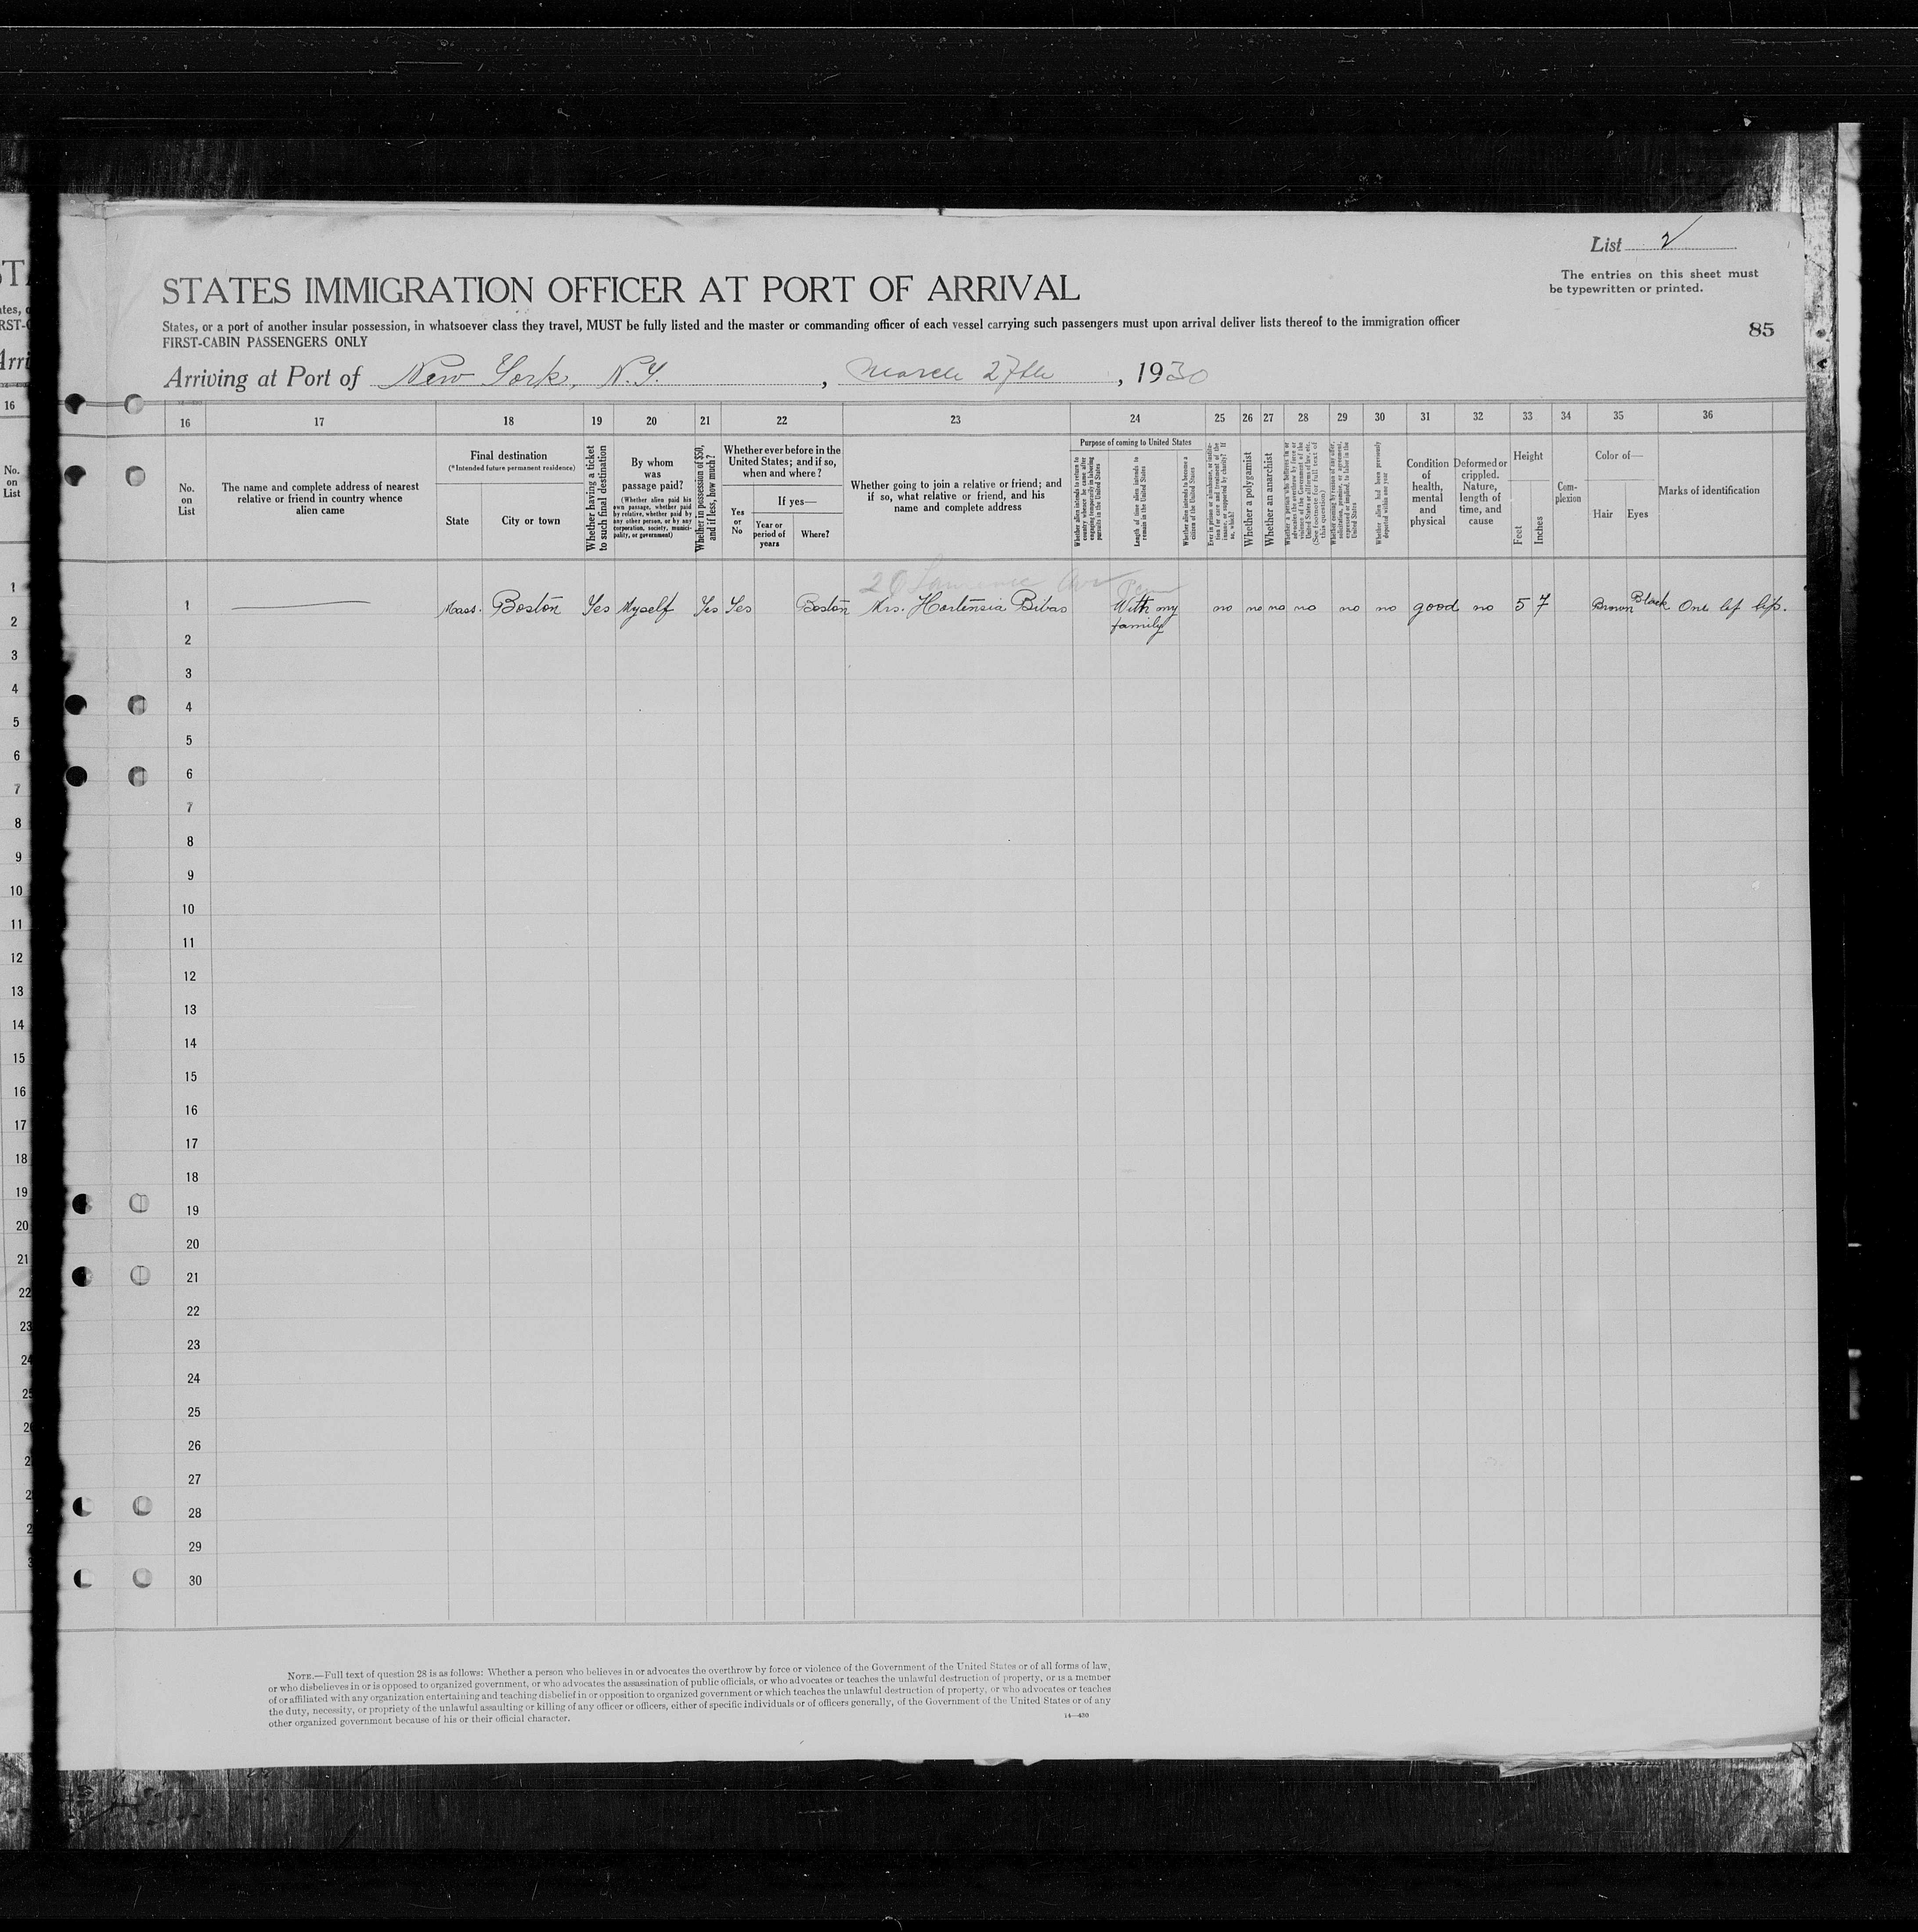 List 2
The entries on this sheet must
be typewritten or printed.
STATES IMMIGRATION OFFICER AT PORT OF ARRIVAL
States, or a port of another insular possession, in whatsoever class they travel, MUST be fully listed and the master or commanding officer of each vessel carrying such passengers must upon arrival deliver lists thereof to the immigration officer
FIRST-CABIN PASSENGERS ONLY
85
Arriving at Port of New York, N.Y. , March 27th , 1930
16 17 18 19 20 21 22 23 24 25 26 27 28 29 30 31 32 33 34 35 36
No.
on
List
The name and complete address of nearest
relative or friend in country whence
alien came
Final destination
(*Intended future permanent residence)
State
City or town
Whether having a ticket
to such final destination
By whom
was
passage paid?
(Whether alien paid his
own passage, whether paid
by relative, whether paid by
any other person, or by any
corporation, society, munici-
pality, or government)
Whether in possession of $50,
and if less, how much?
Whether ever before in the
United States; and if so,
when and where?
Yes
or
No
If yes—
Year or
period of
years
Where?
Whether going to join a relative or friend; and
if so, what relative or friend, and his
name and complete address
Purpose of coming to United States
Whether alien intends to return to
country whence he came after
engaging temporarily in laboring
pursuits in the United States
Length of time alien intends to
remain in the United States
Whether alien intends to become a
citizen of the United States
Ever in prison or almshouse, or institu-
tion for care and treatment of the
insane, or supported by charity? If
so, which?
Whether a polygamist
Whether an anarchist
Whether a person who believes in or
advocates the overthrow by force or
violence of the Government of the
United States or all forms of law, etc.
(See footnote for full text of
this question)
Whether coming by reason of any offer,
solicitation, promise, or agreement,
expressed or implied, to labor in the
United States
Whether alien had been previously
deported within one year
Condition
of
health,
mental
and
physical
Deformed or
crippled.
Nature,
length of
time, and
cause
Height
Feet
Inches
Com-
plexion
Color of—
Hair
Eyes
Marks of identification
1 Mass. Boston Yes Myself Yes Yes Boston Mrs. Hortensia Bibas With my no no no no no no good no 5 7 Brown Black One lef lip.
family
2
3
4
5
6
7
8
9
10
11
12
13
14
15
16
17
18
19
20
21
22
23
24
25
26
27
28
29
30
NOTE.—Full text of question 28 is as follows: Whether a person who believes in or advocates the overthrow by force or violence of the Government of the United States or of all forms of law,
or who disbelieves in or is opposed to organized government, or who advocates the assassination of public officials, or who advocates or teaches the unlawful destruction of property, or is a member
of or affiliated with any organization entertaining and teaching disbelief in or opposition to organized government or which teaches the unlawful destruction of property, or who advocates or teaches
the duty, necessity, or propriety of the unlawful assaulting or killing of any officer or officers, either of specific individuals or of officers generally, of the Government of the United States or of any
other organized government because of his or their official character.
14—430